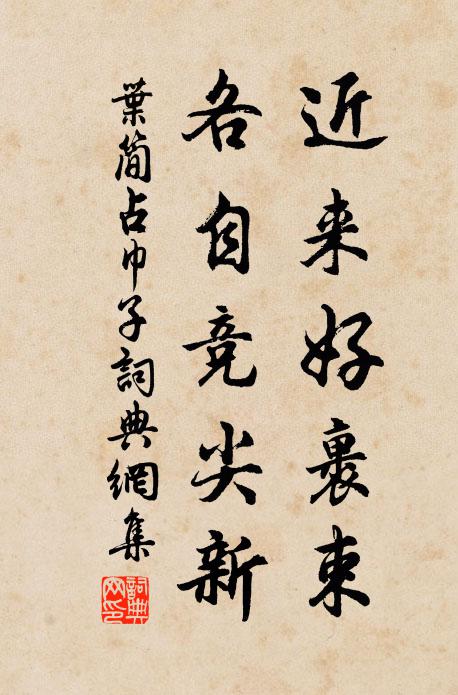 近来好裹束
各自竞尖新
葉簡占巾子詞典網集
詞典網印